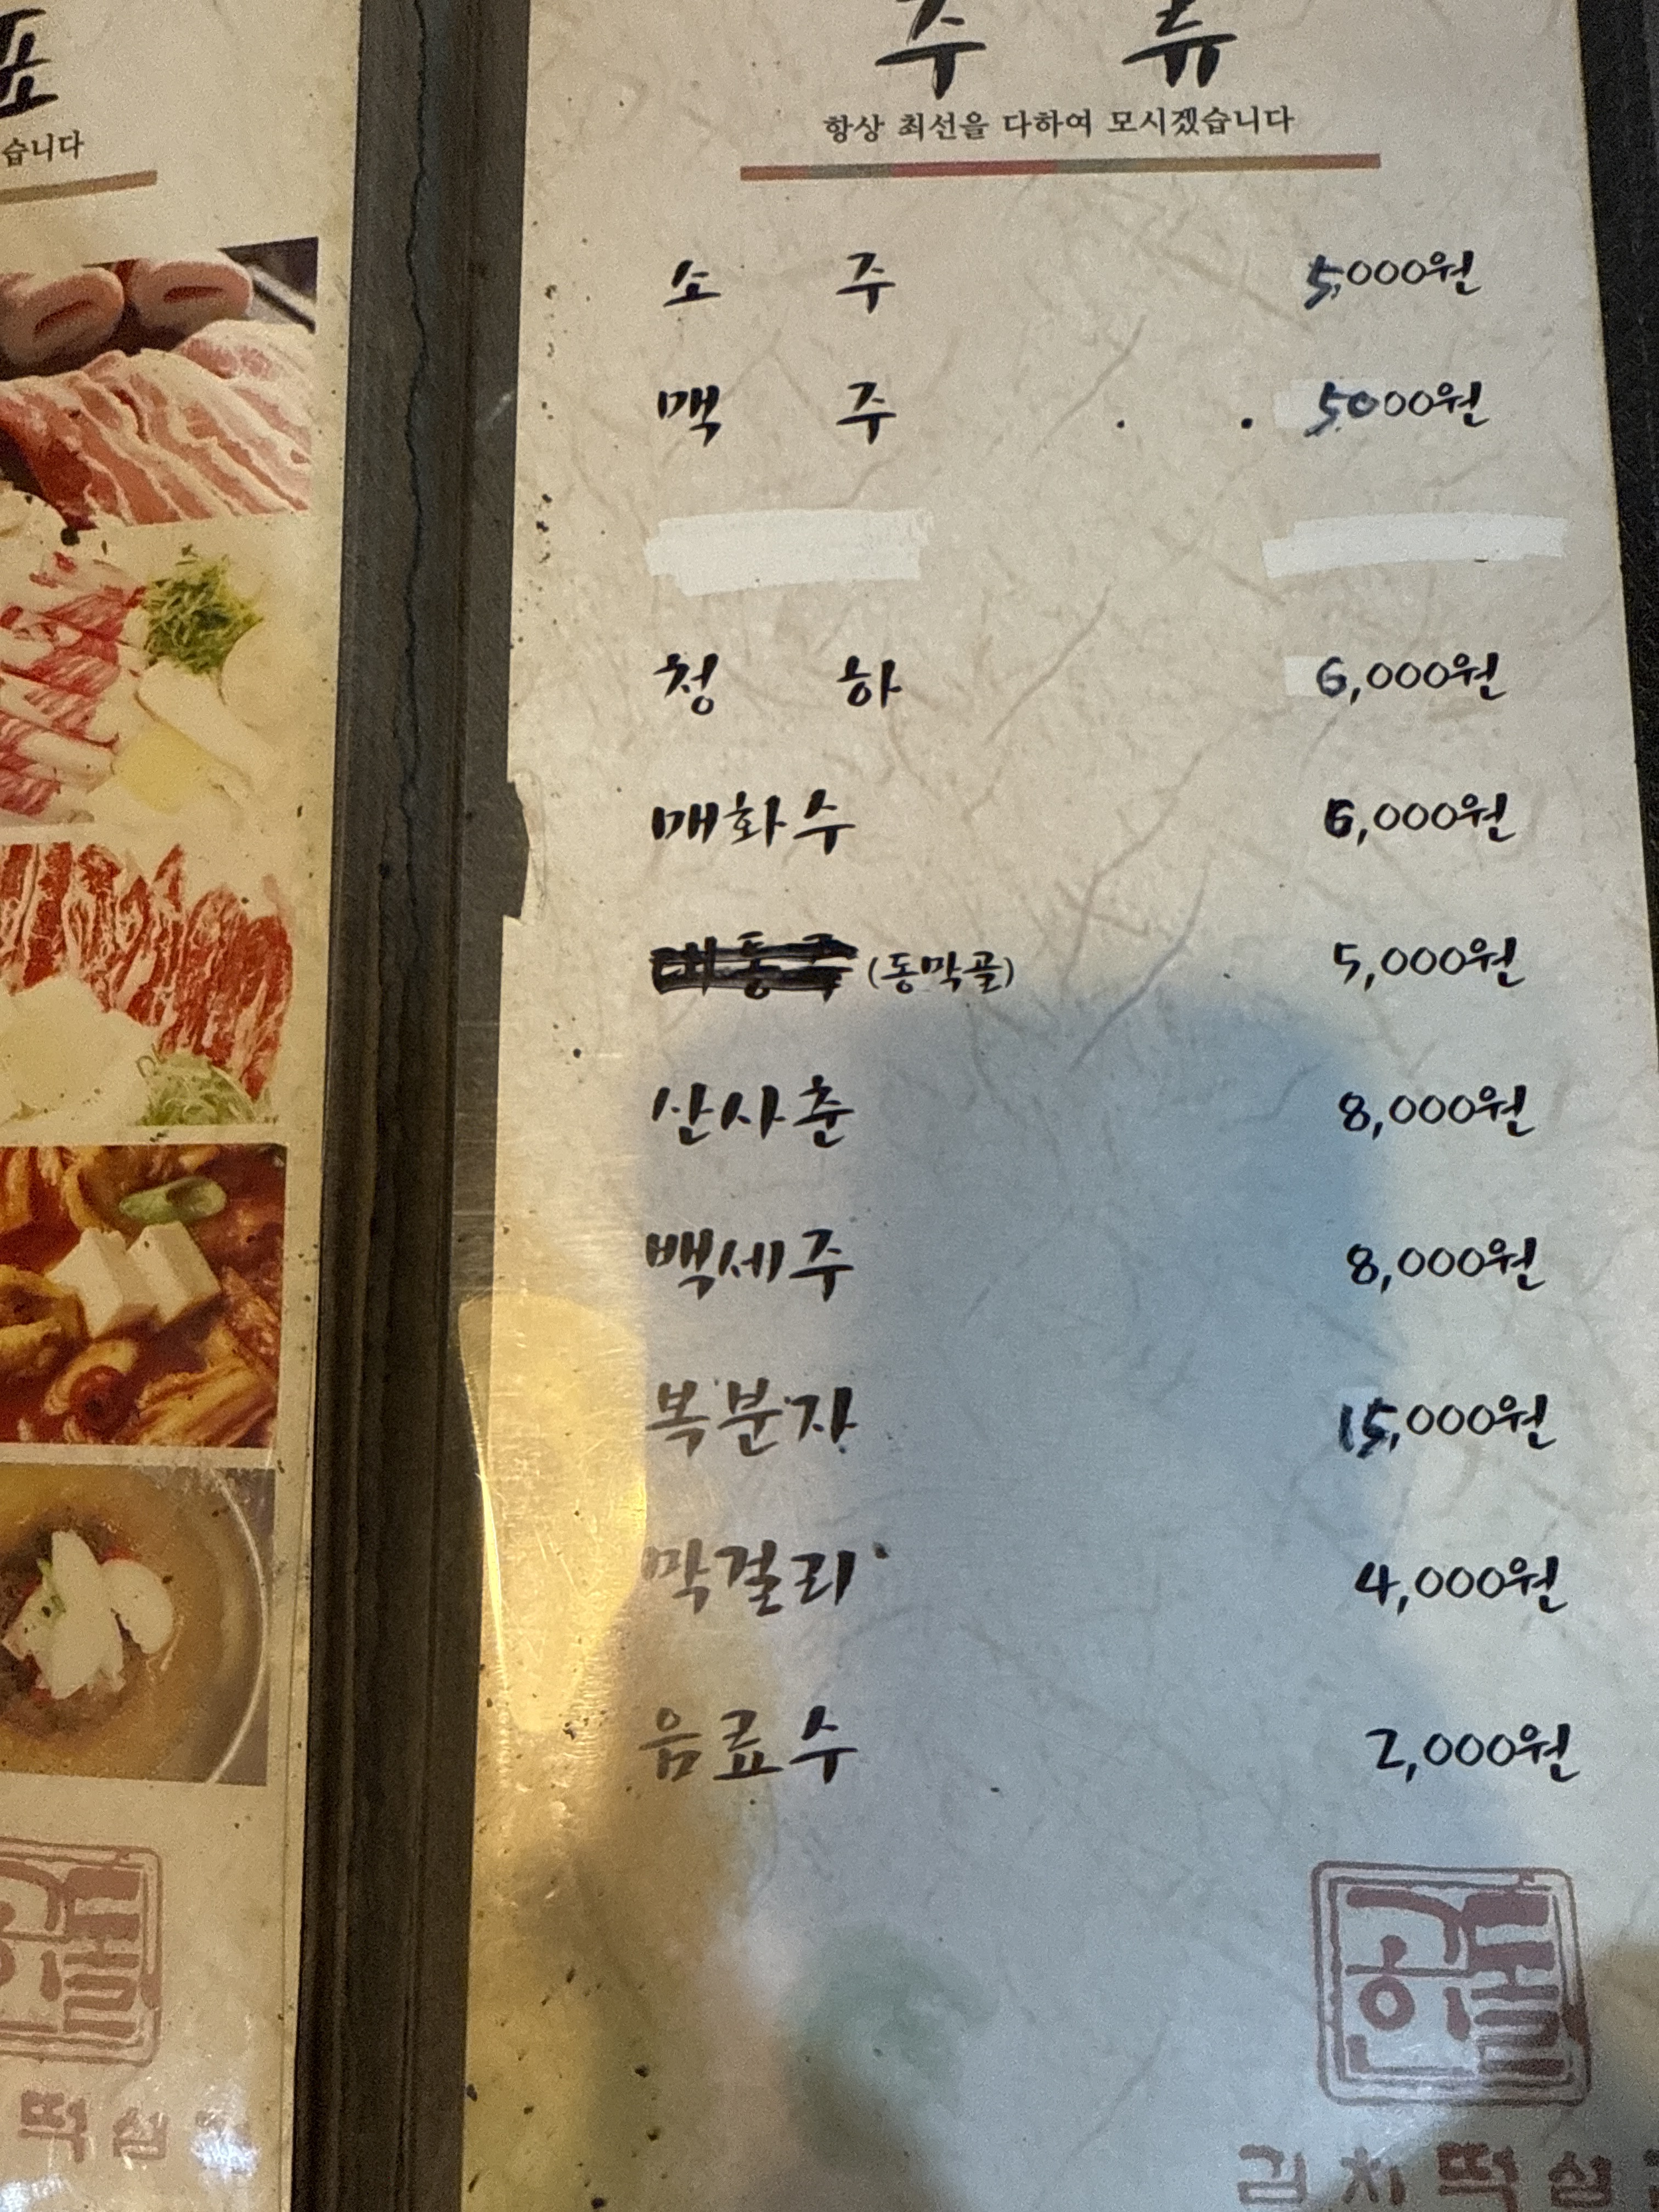 습니다
주 류
항상 최선을 다하여 모시겠습니다
소 주 5,000원
맥 주 5000원
청 하 6,000원
매화수 6,000원
대통주 (동막골) 5,000원
산사춘 8,000원
백세주 8,000원
복분자 15,000원
막걸리 4,000원
음료수 2,000원
떡 쌈
김 치 떡 쌈